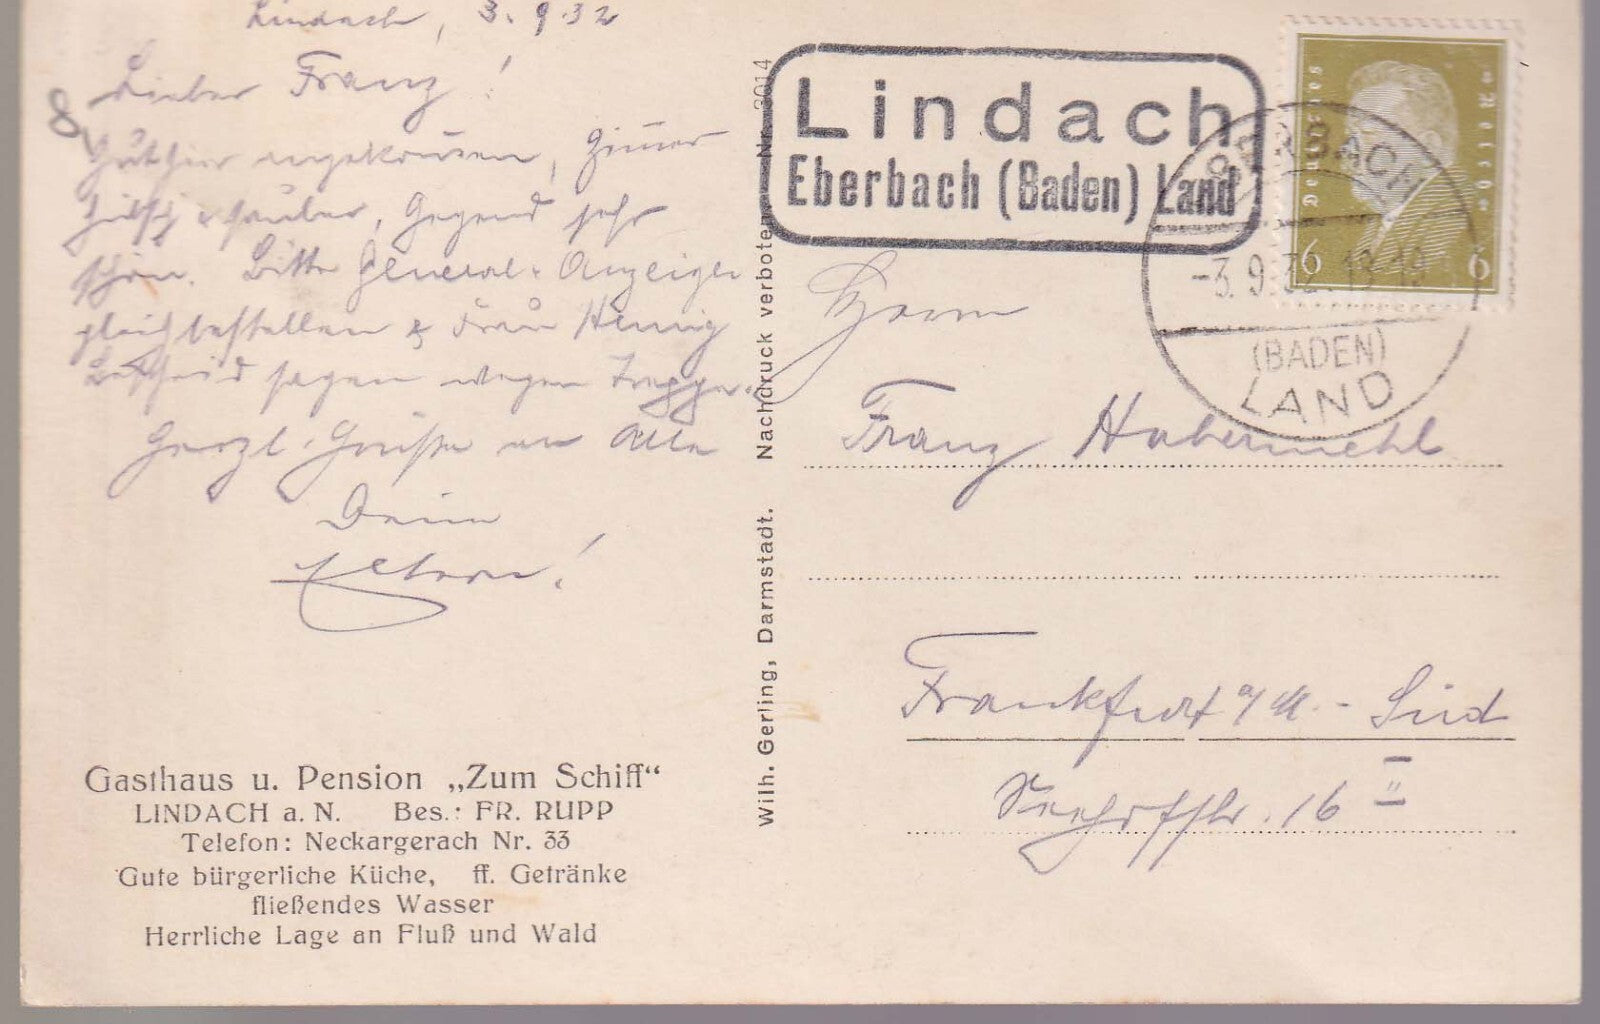 Lindach, 3.9.32
Lieber Franz!
Gut hier angekommen, Zimmer
hübsch & sauber, Gegend sehr
schön. Bitte General-Anzeiger
gleich bestellen & Frau Hennig
Bescheid sagen wegen
Herzl. Grüße an Alle
Deine
Eltern!
Gasthaus u. Pension „Zum Schiff“
LINDACH a. N. Bes.: FR. RUPP
Telefon: Neckargerach Nr. 33
Gute bürgerliche Küche, ff. Getränke
fließendes Wasser
Herrliche Lage an Fluß und Wald
Wilh. Gerling, Darmstadt. Nachdruck verboten. Nr. 3014
Lindach
Eberbach (Baden) Land
-3.9.32.
(BADEN)
LAND
6 6
Herrn
Franz Habermehl
Frankfurt a/M.-Süd
16 II